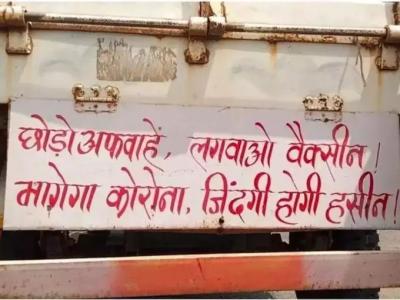 छोड़ो अफवाहें, लगवाओ वैक्सीन!
भागेगा कोरोना, जिंदगी होगी हसीन!